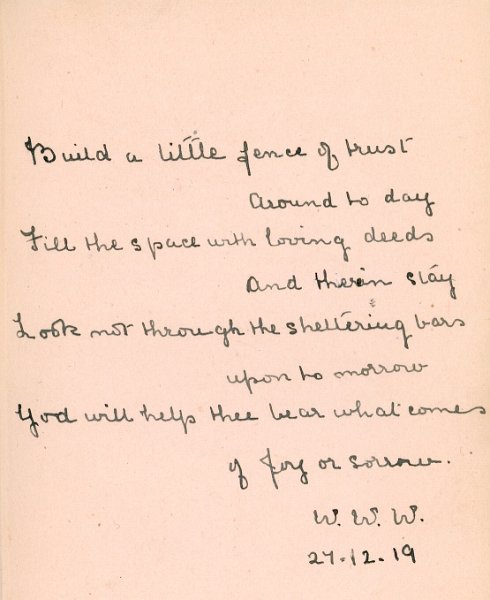 Build a little fence of trust
Around to day
Fill the space with loving deeds
And therin stay
Look not through the sheltering bars
upon to morrow
God will helps thee bear what comes
of Joy or sorrow.
W. W. W.
27.12.19